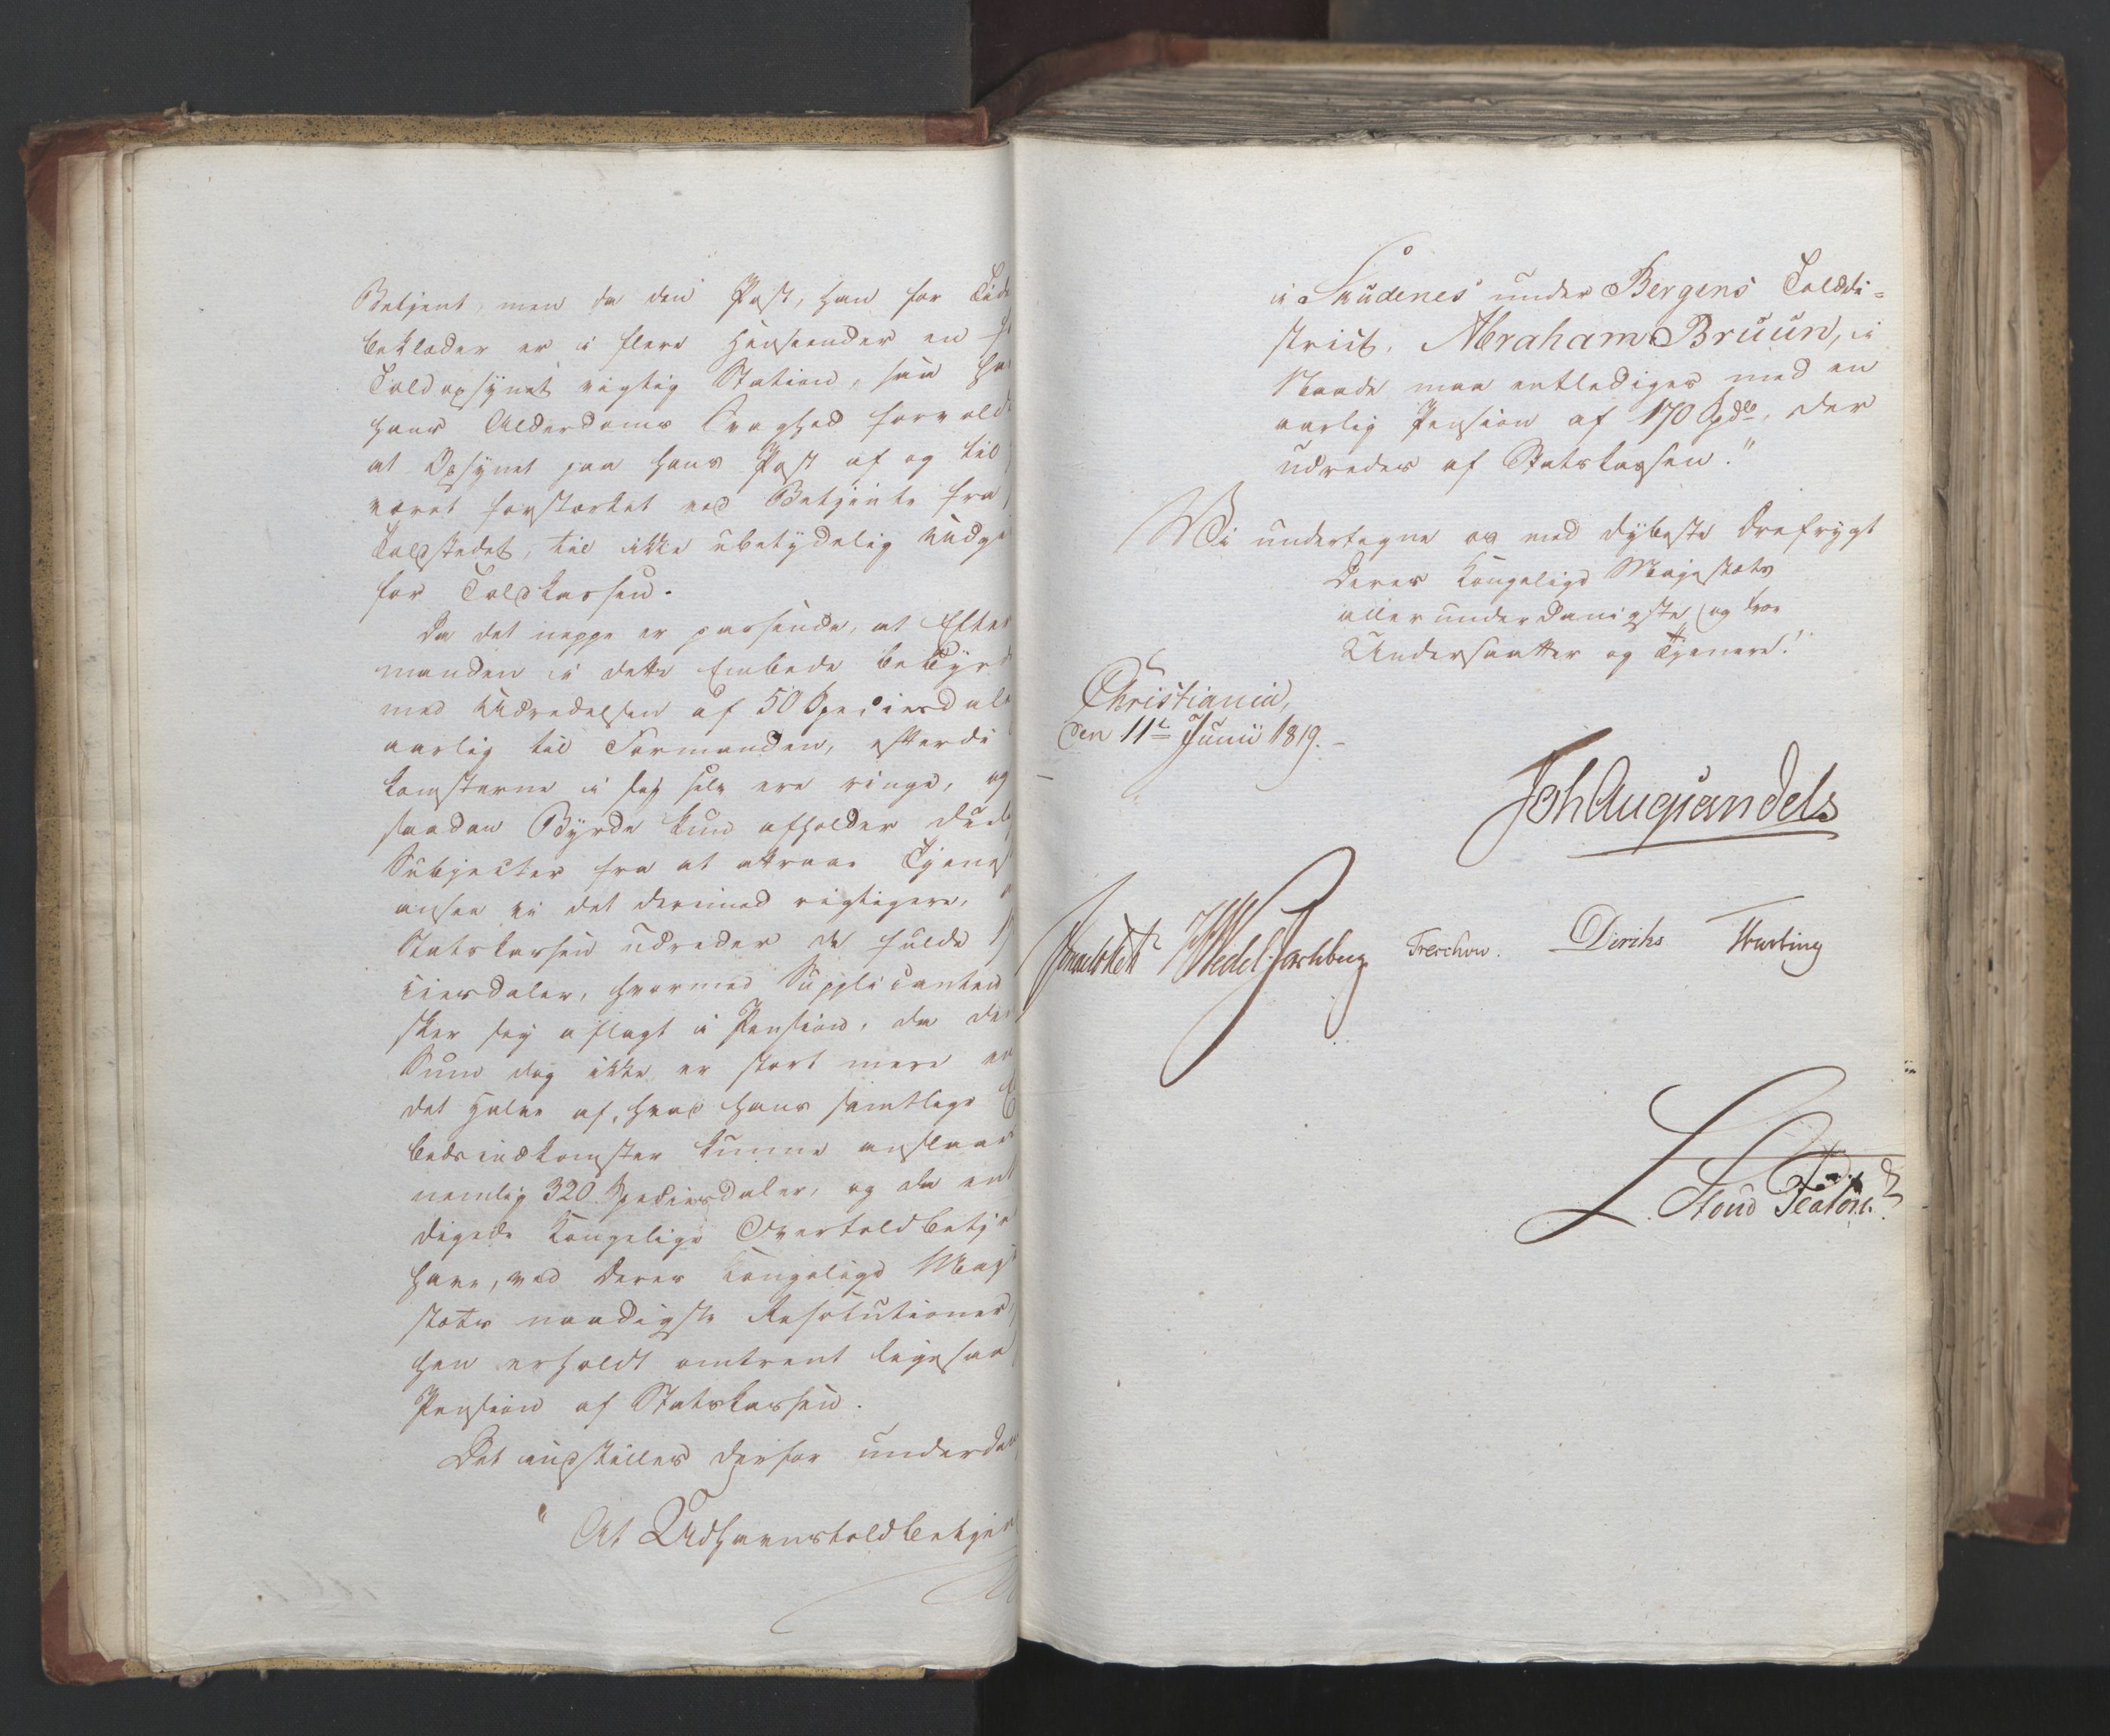 Betjent, men da den Post, han for Tide
beklæder er i flere Henseender en
Toldopsynet vigtig Station, saa ha
hans Alderdoms Svaghed forvoldt
at Opsynet paa hans Post af og til
været forstærket ved Betjente fra
Toldstedet, til ikke ubetydelig Udgi
for Toldkassen.
Da det neppe er passende, at Efter
manden i dette Embede bebyrd
med Udredelsen af 50 Speciesdale
aarlig til Formanden, efterdi
komsterne i sig selv ere ringe, og
saadan Byrde kun afholder due
Subjecter fra at attraae Tjenes
ansee vi det derimod rigtigere,
Statskassen udreder de fulde 1
ciesdaler, hvormed Supplicanten
sker sig aflagt i Pension, da de
Sum dog ikke er stort mere en
det Halve af, hvad hans samtlige E
bedsindkomster kunne anslaae
nemlig 320 Speciesdaler, og da ent
digede Kongelige Overtoldbetje
have, ved Deres Kongelige Maj
stæts naadigste Resolutioner,
hen erholdt omtrent ligesaa
Pension af Statskassen.
Det indstilles derfor underda
"At Udhavnstoldbetjen
i Skudenes under Bergens Tolddi=
strict, Abraham Bruun, i
Naade maa entlediges med en
aarlig Pension af 170 Spdlr, der
udredes af Statskassen."
Vi undertegne os med dybeste Ærefrygt
Deres Kongelige Majestæts
allerunderdanigste og troe
Undersaatter og Tjenere!
Christiania,
den 11te Junii 1819.
Joh Aug Sandels
Sommerhielm Wedel Jarlsberg Treschow. Diriks Motzfeldt
L. Stoud Platou